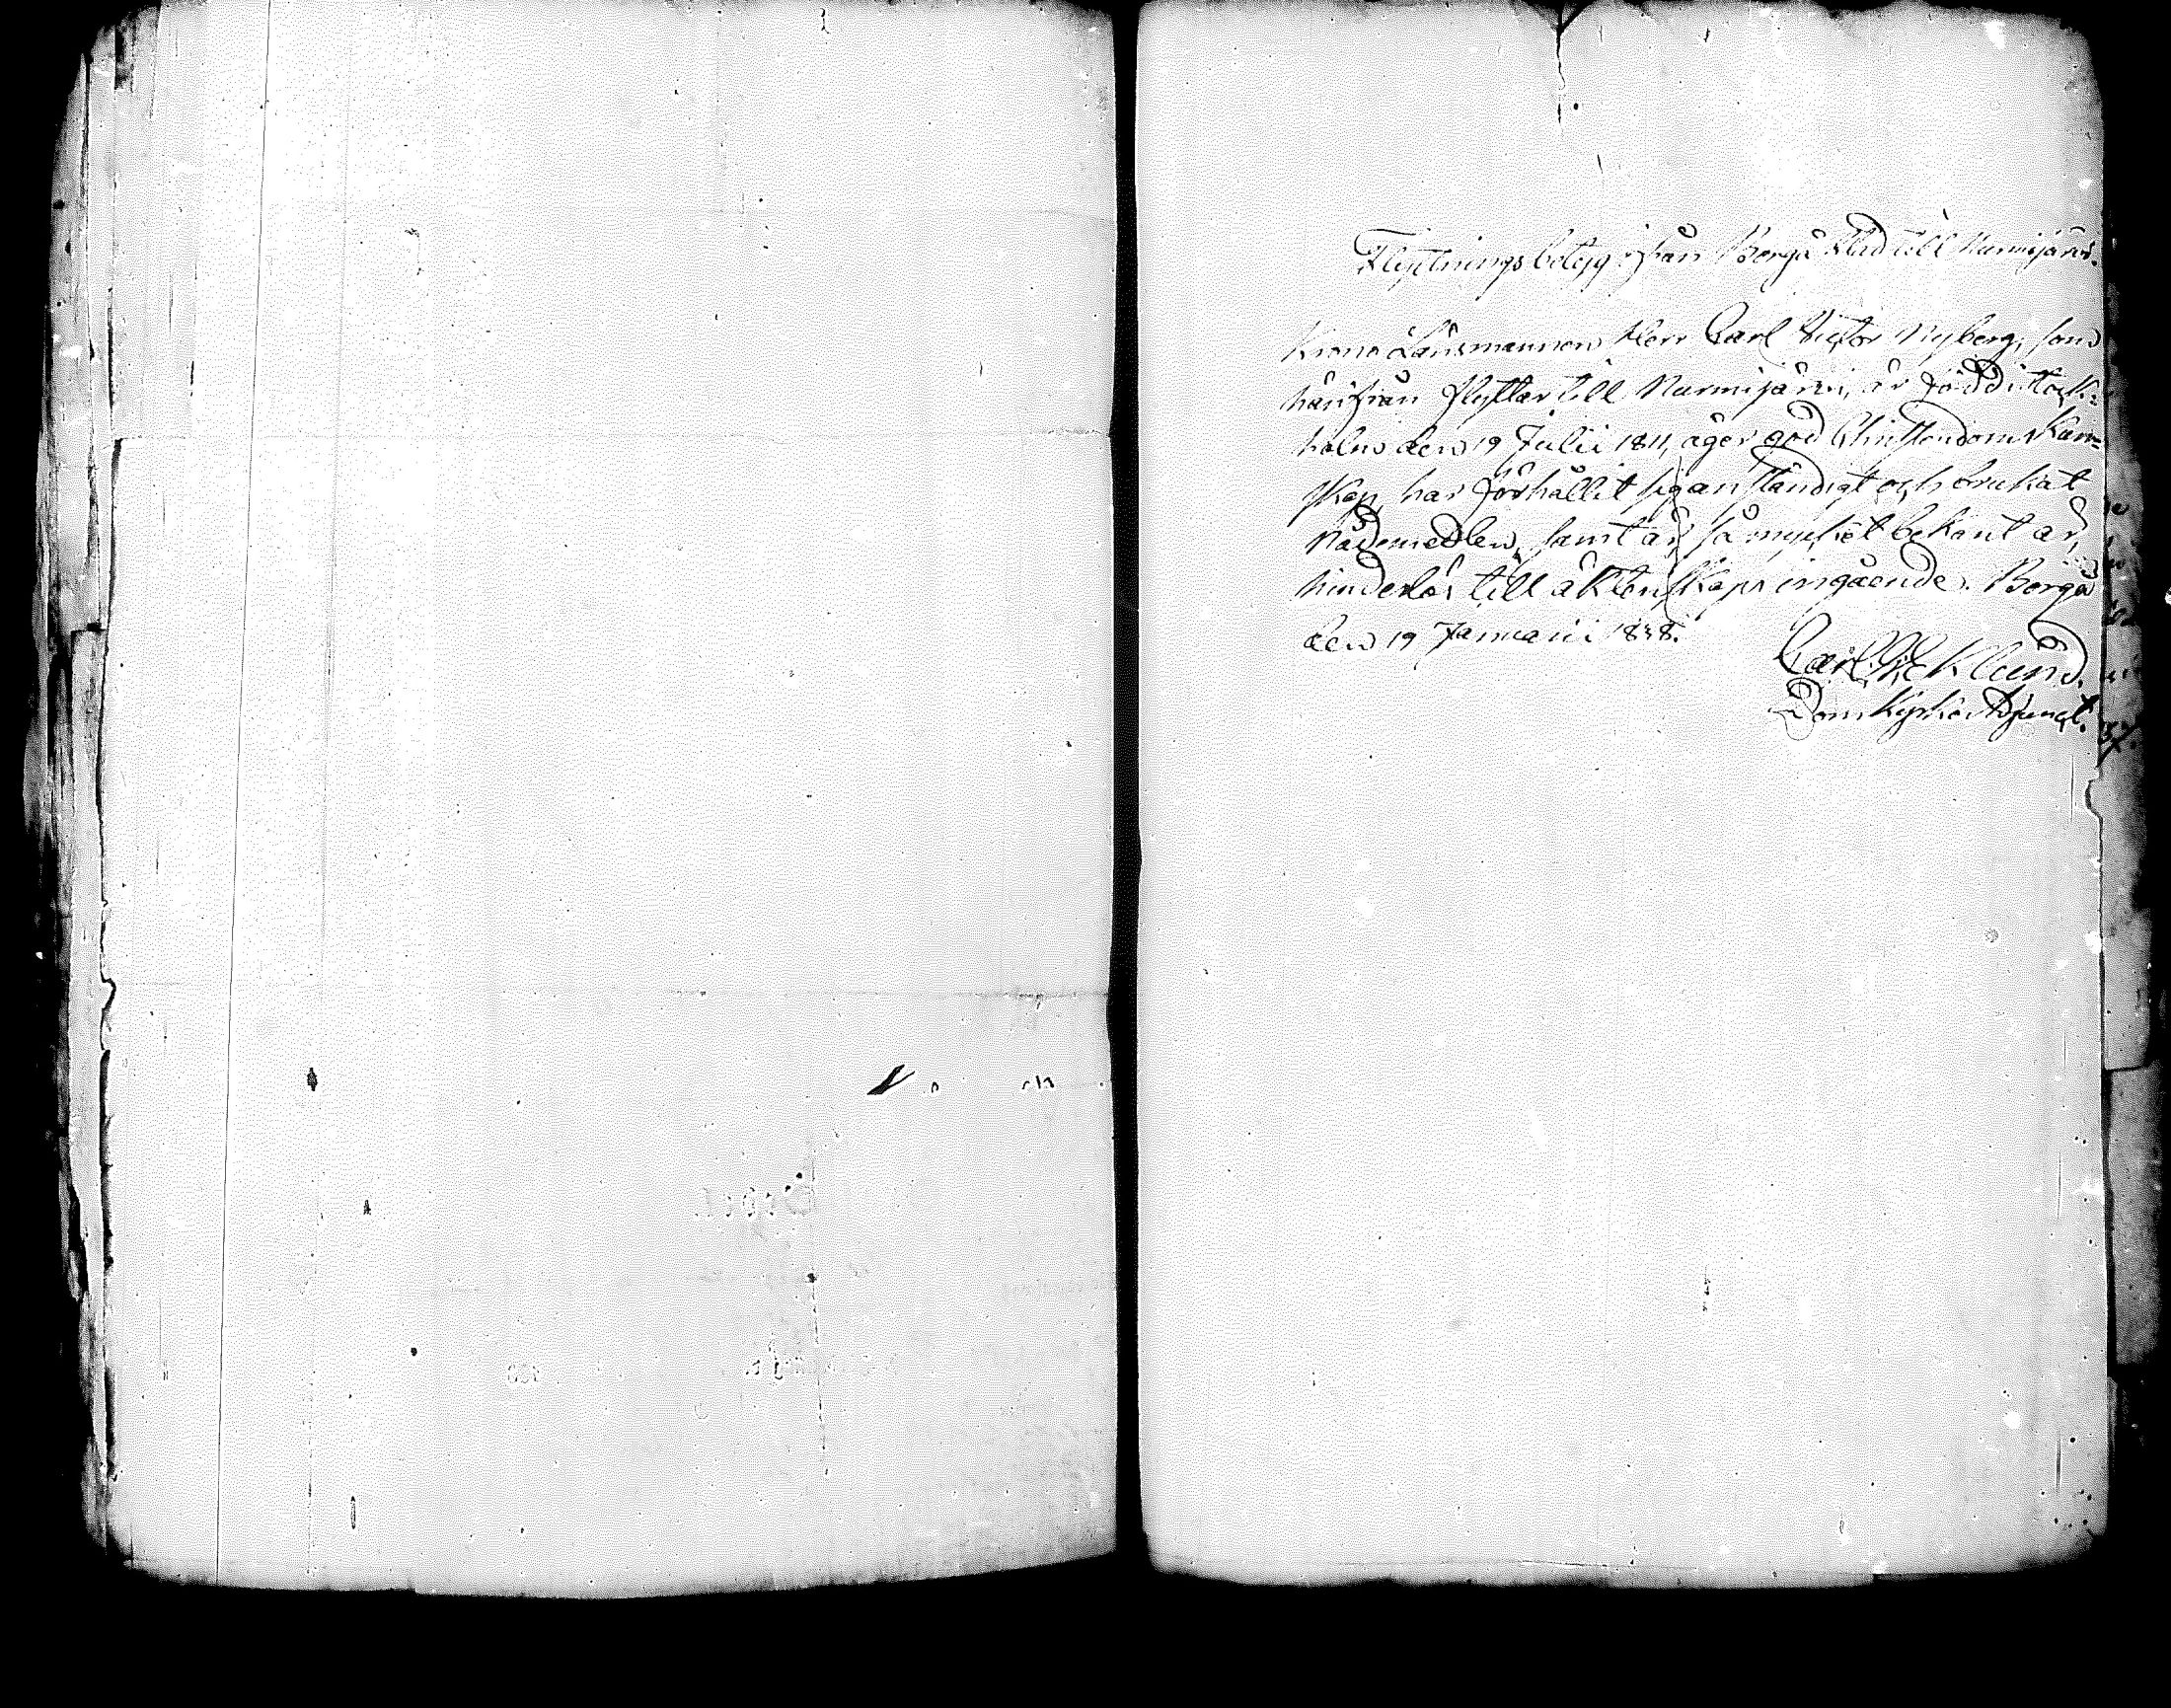 Flyttningsbetyg ifrån Borgå Stad till Nurmijärvi.
Krono Länsmannen Herr Carl Victor Nyberg, som
härifrån flyttar till Nurmijärvi, är född i Stock-
holm den 19 Julii 1811, äger god Christendoms Kun-
skap, har förhållit sig anständigt och brukat
Nådemedlen, samt är så mycket bekant är,
hinderlös till äktenskaps ingående. Borgå
den 19 Januarii 1838.
Carl Eklund.
DomKyrko Adjunct.